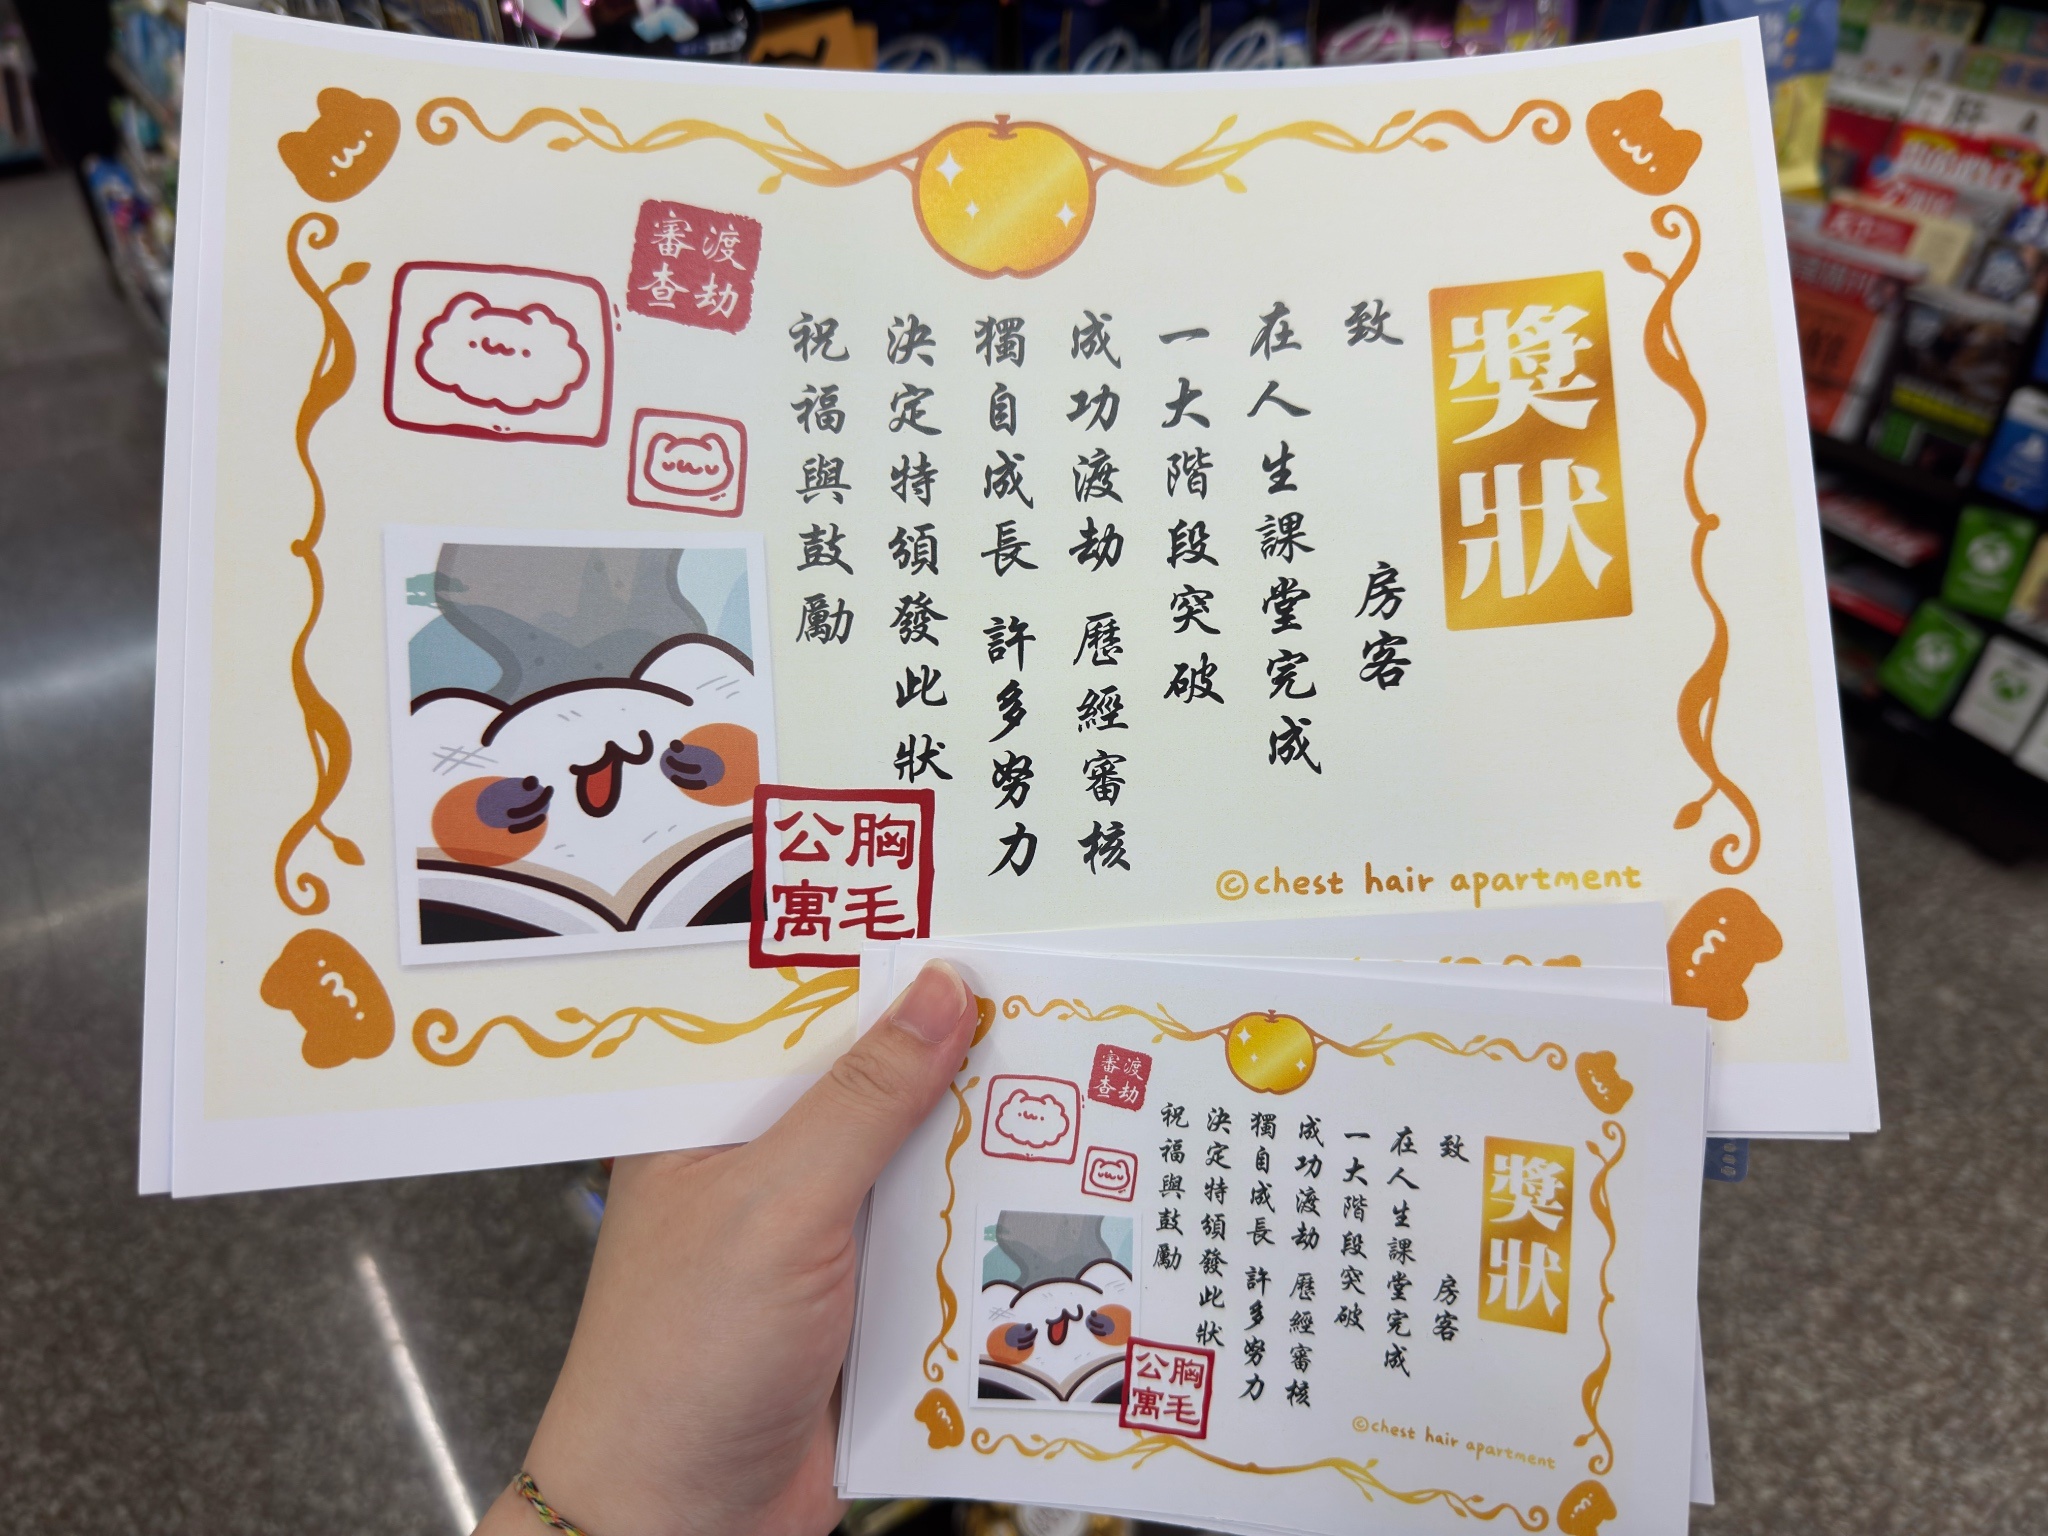 獎狀
致 房客
在人生課堂完成
一大階段突破
成功渡劫 歷經審核
獨自成長 許多努力
決定特頒發此狀
祝福與鼓勵
渡劫
審查
胸毛
公寓
©chest hair apartment
獎狀
致 房客
在人生課堂完成
一大階段突破
成功渡劫 歷經審核
獨自成長 許多努力
決定特頒發此狀
祝福與鼓勵
渡劫
審查
胸毛
公寓
©chest hair apartment